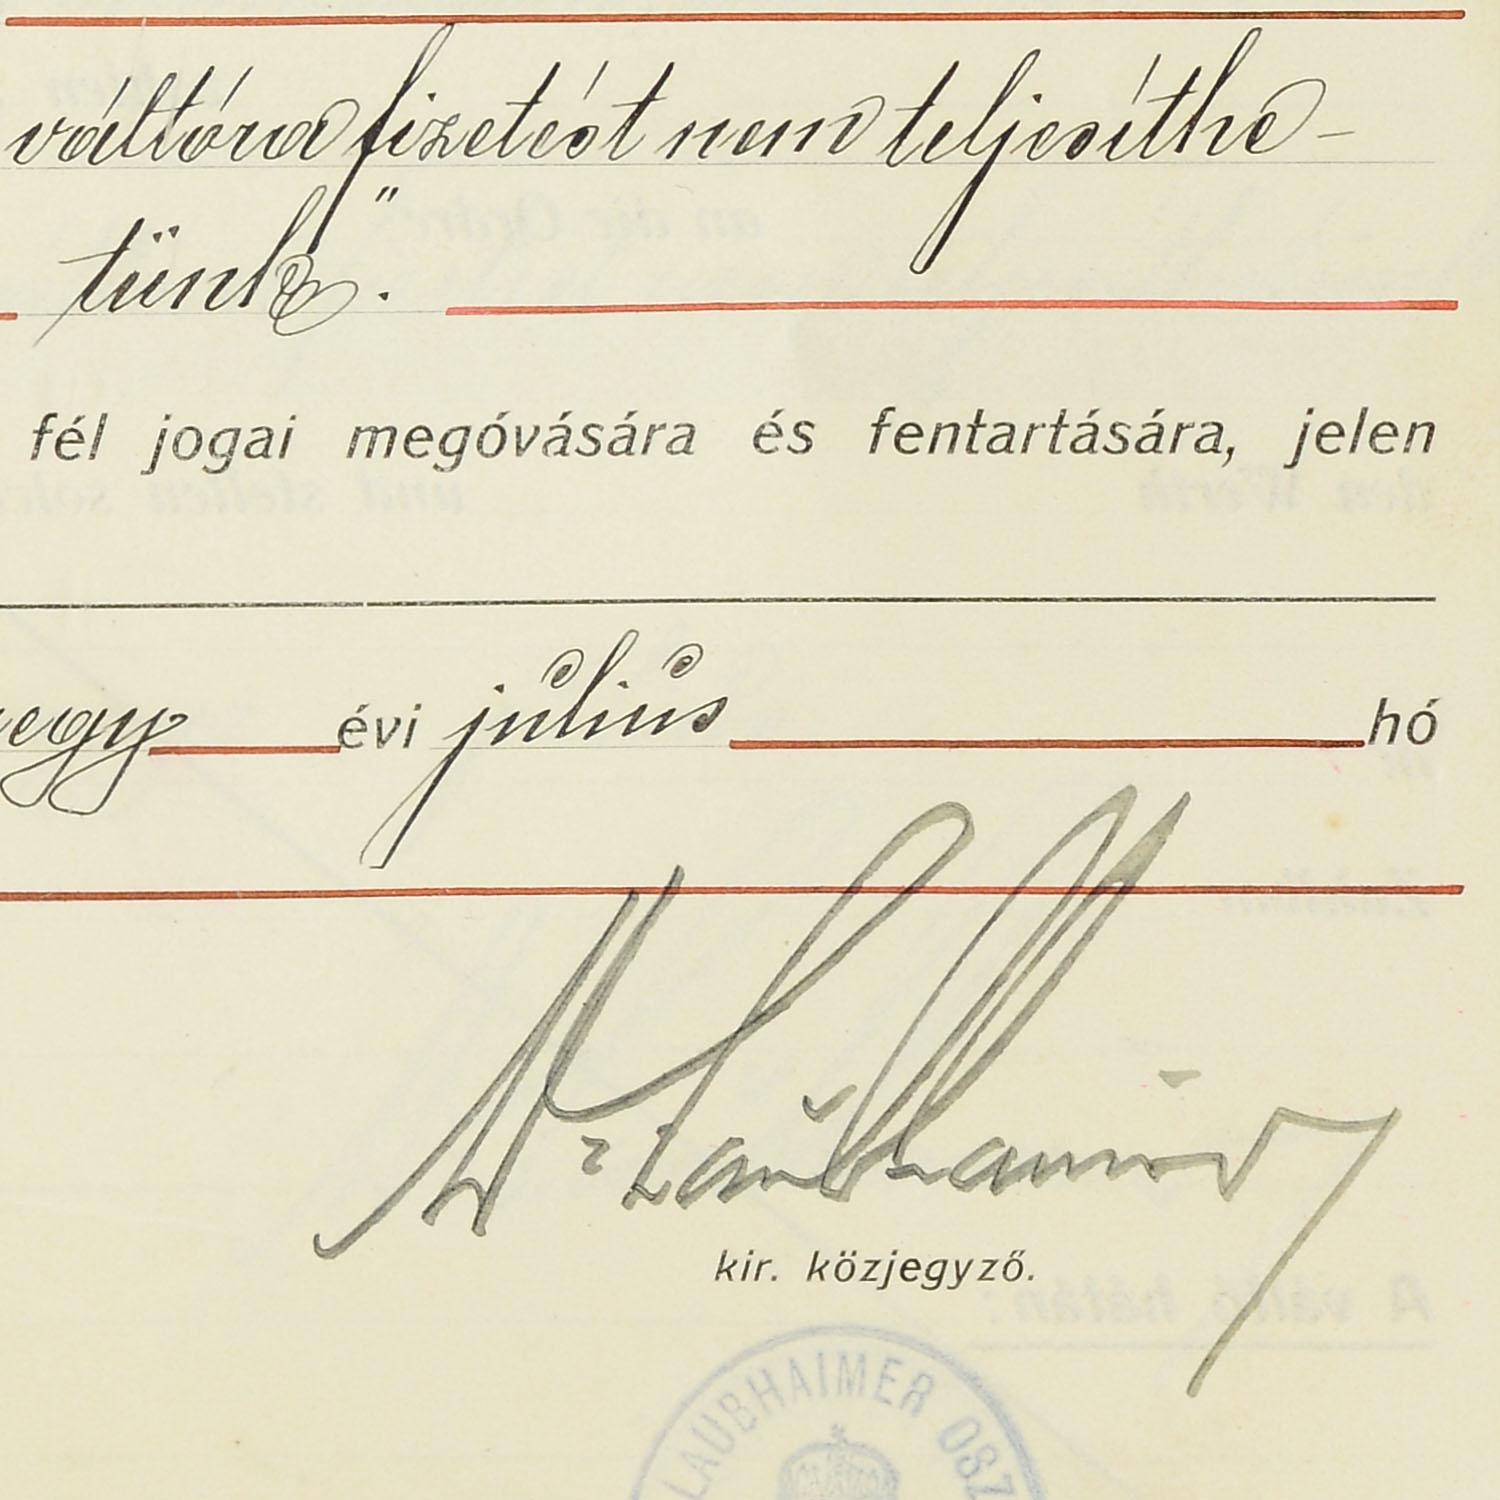 váltóra fizetést nem teljesíthe-
tünk."
fél jogai megóvására és fentartására, jelen
egy évi július hó
kir. közjegyző.
LAUBHAIMER OSZ